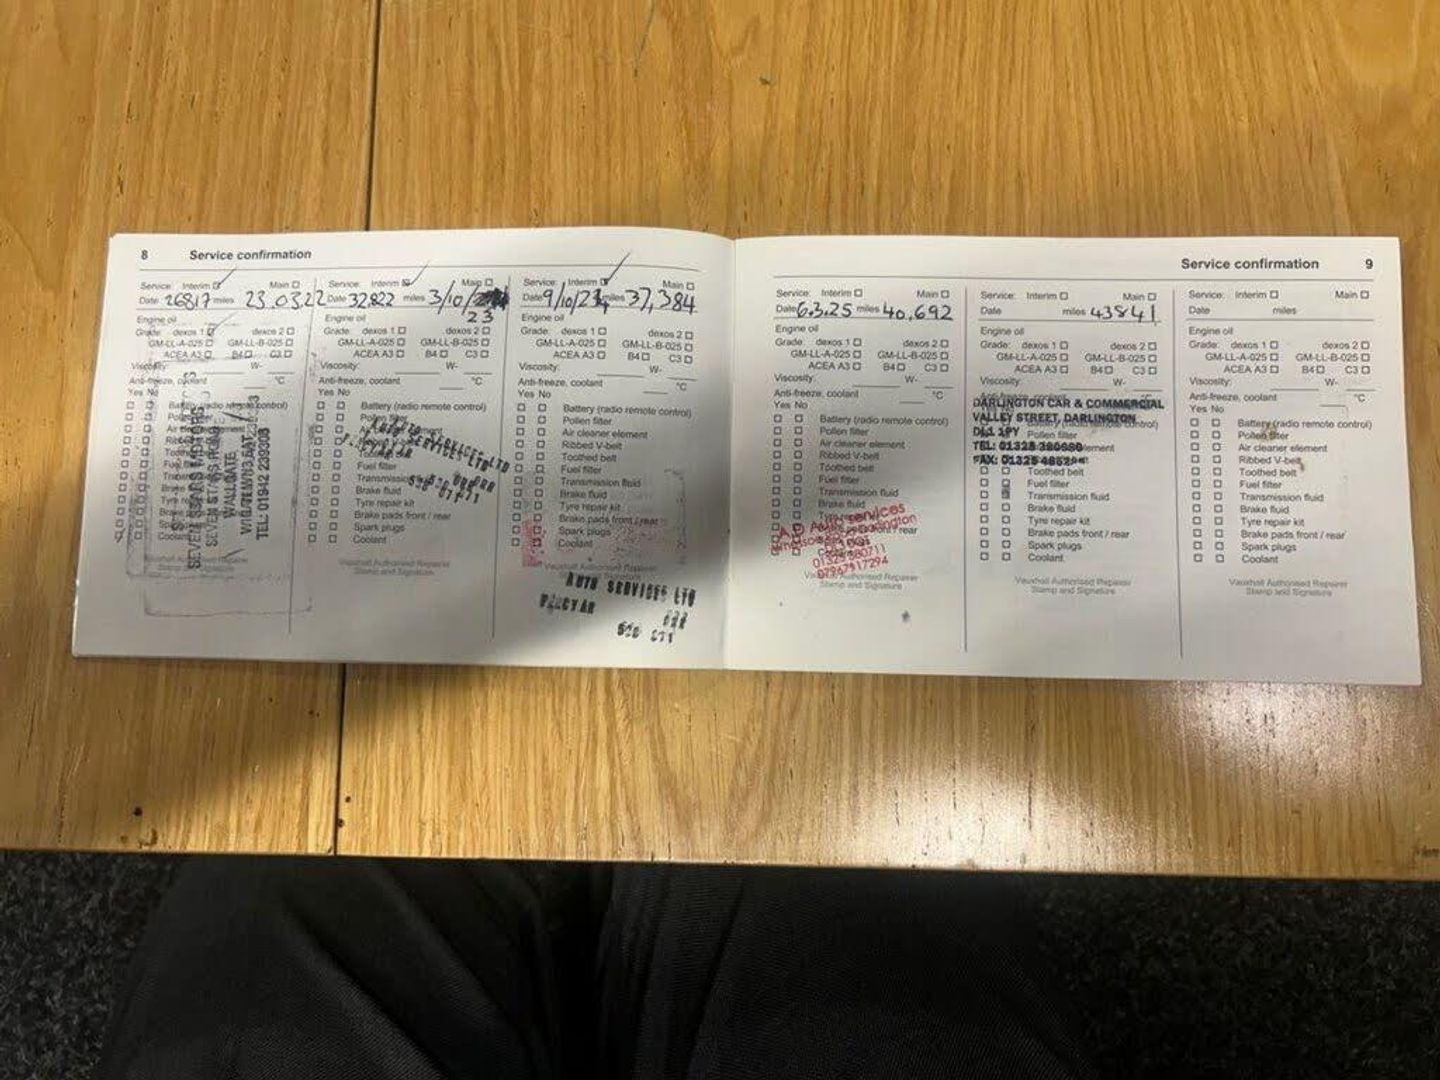 8 Service confirmation
Service: Interim Main
Date 26817 miles 23.03.22
Engine oil
Grade: dexos 1 dexos 2
GM-LL-A-025 GM-LL-B-025
ACEA A3 B4 C3
Viscosity: W-
Anti-freeze, coolant °C
Yes No
Battery (radio remote control)
Coolant
SEVEN STARS MOTORS
WALLGATE
TEL: 01942 239303
Vauxhall Authorised Repairer
Stamp and Signature
Service: Interim Main
Date 32,822 miles 3/10/
23
Engine oil
Grade: dexos 1 dexos 2
GM-LL-A-025 GM-LL-B-025
ACEA A3 B4 C3
Viscosity: W-
Anti-freeze, coolant °C
Yes No
Battery (radio remote control)
Pollen filter
Fuel filter
Transmission
Brake fluid
Tyre repair kit
Brake pads front / rear
Spark plugs
Coolant
SERVICES LTD
Vauxhall Authorised Repairer
Stamp and Signature
Service: Interim Main
Date 9/10/24 miles 37,384
Engine oil
Grade: dexos 1 dexos 2
GM-LL-A-025 GM-LL-B-025
ACEA A3 B4 C3
Viscosity: W-
Anti-freeze, coolant °C
Yes No
Battery (radio remote control)
Pollen filter
Air cleaner element
Ribbed V-belt
Toothed belt
Fuel filter
Transmission fluid
Brake fluid
Tyre repair kit
Brake pads front / rear
Spark plugs
Coolant
Vauxhall Authorised Repairer
AUTO SERVICES LTD
Service confirmation 9
Service: Interim Main
Date 6.3.25 miles 40,692
Engine oil
Grade: dexos 1 dexos 2
GM-LL-A-025 GM-LL-B-025
ACEA A3 B4 C3
Viscosity: W-
Anti-freeze, coolant °C
Yes No
Battery (radio remote control)
Pollen filter
Air cleaner element
Ribbed V-belt
Toothed belt
Fuel filter
Transmission fluid
Brake fluid
Tyre repair
Auto Services
Darlington
07967917294
Vauxhall Authorised Repairer
Stamp and Signature
Service: Interim Main
Date miles 43841
Engine oil
Grade: dexos 1 dexos 2
GM-LL-A-025 GM-LL-B-025
ACEA A3 B4 C3
Viscosity: W-
Anti-freeze, coolant °C
DARLINGTON CAR & COMMERCIAL
VALLEY STREET, DARLINGTON
DL1 1PY
TEL: 01325 380680
Pollen filter
Toothed belt
Fuel filter
Transmission fluid
Brake fluid
Tyre repair kit
Brake pads front / rear
Spark plugs
Coolant
Vauxhall Authorised Repairer
Stamp and Signature
Service: Interim Main
Date miles
Engine oil
Grade: dexos 1 dexos 2
GM-LL-A-025 GM-LL-B-025
ACEA A3 B4 C3
Viscosity: W-
Anti-freeze, coolant °C
Yes No
Battery (radio remote control)
Pollen filter
Air cleaner element
Ribbed V-belt
Toothed belt
Fuel filter
Transmission fluid
Brake fluid
Tyre repair kit
Brake pads front / rear
Spark plugs
Coolant
Vauxhall Authorised Repairer
Stamp and Signature